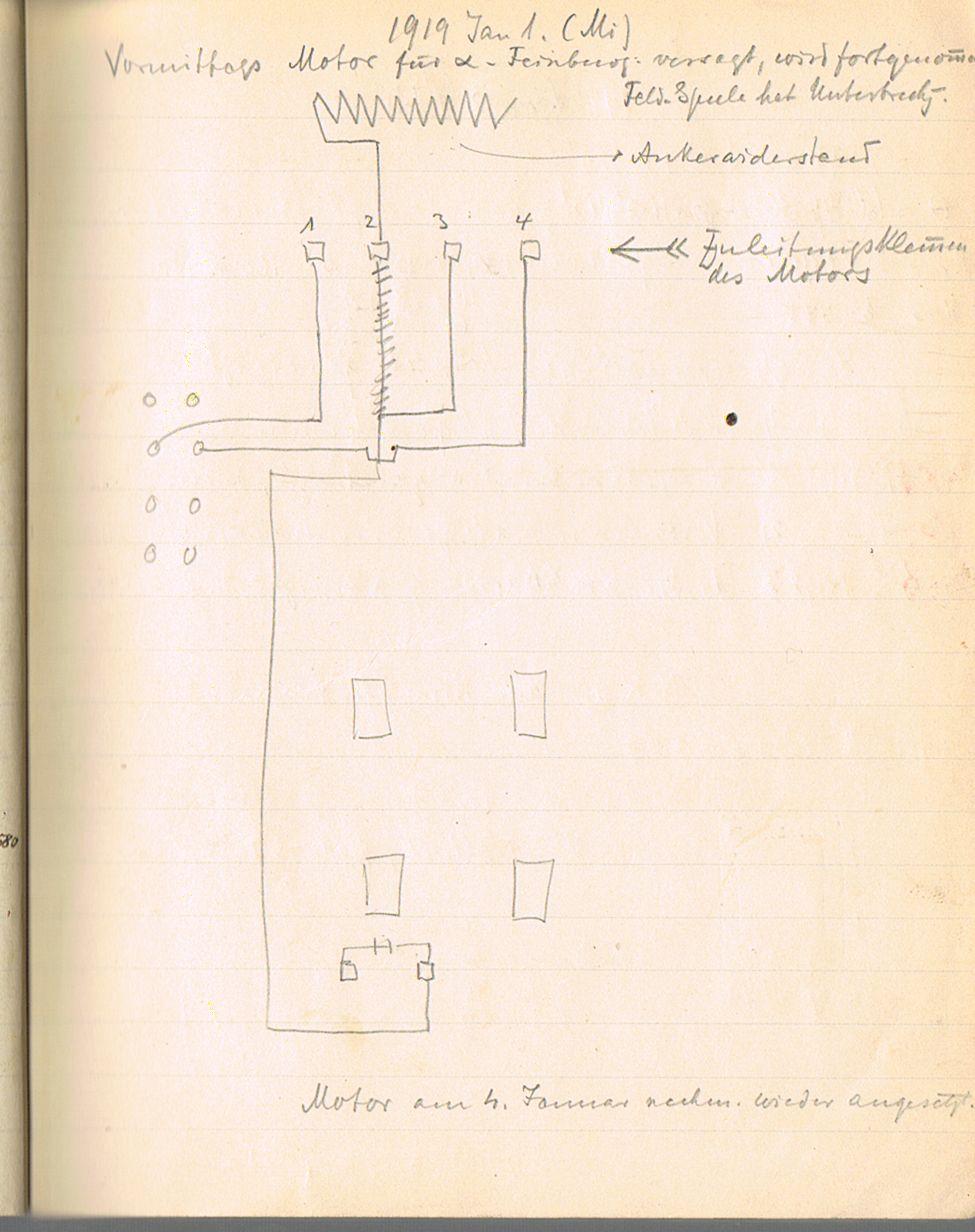 1919 Jan 1. (Mi)
Vormittags Motor für α-Feinbewg. versagt, wird fortgenom̅en
Feld-Spule hat Unterbrechg.
Ankerwiderstand
1 2 3 4
Zuleitungsklem̅en
des Motors
580
Motor am 4. Januar nachm. wieder angesetzt.